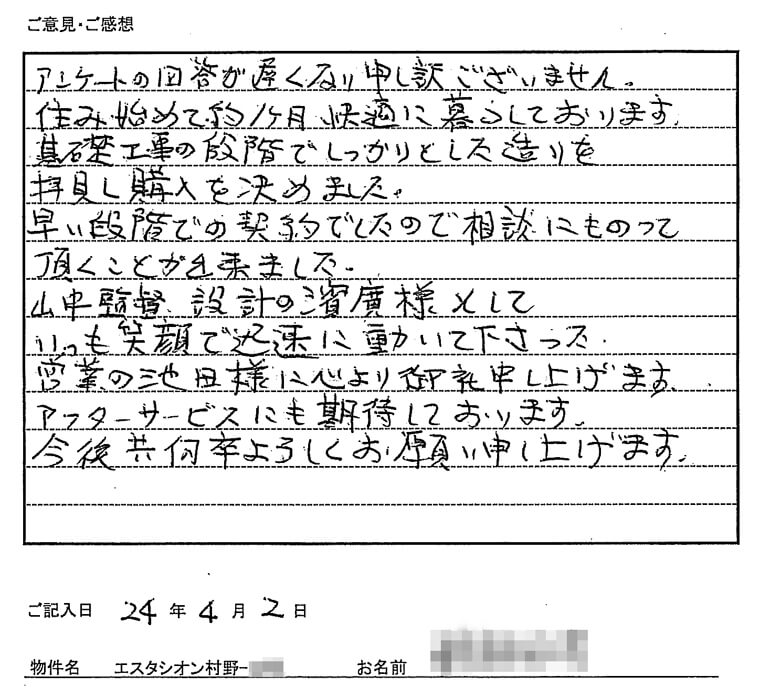 ご意見・ご感想
アンケートの回答が遅くなり申し訳ございません。
住み始めて約1ヶ月 快適に暮らしております。
基礎工事の段階でしっかりとした造りを
拝見し購入を決めました。
早い段階での契約でしたので相談にものって
頂くことが出来ました。
山中監督、設計の濱廣様そして
いつも笑顔で迅速に動いて下さった
営業の池田様に心より御礼申し上げます。
アフターサービスにも期待しております。
今後共何卒よろしくお願い申し上げます。
ご記入日 24 年 4 月 2 日
物件名 エスタシオン村野- お名前